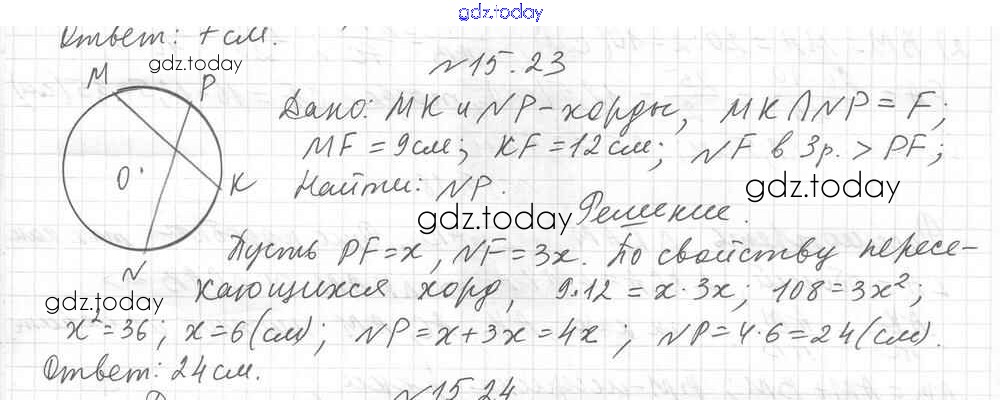 gdz.today
Ответ: 7 см.
gdz.today
№15.23
M P
Дано: MK и NP-хорды, MK∩NP=F;
MF=9см; KF=12см; NF в 3р.>PF;
O K Найти: NP.
gdz.today
gdz.today
Решение.
N Пусть PF=x, NF=3x. По свойству пересе-
кающихся хорд, 9·12=x·3x; 108=3x²;
gdz.today
x²=36; x=6(см); NP=x+3x=4x; NP=4·6=24(см).
Ответ: 24см.
№15.24